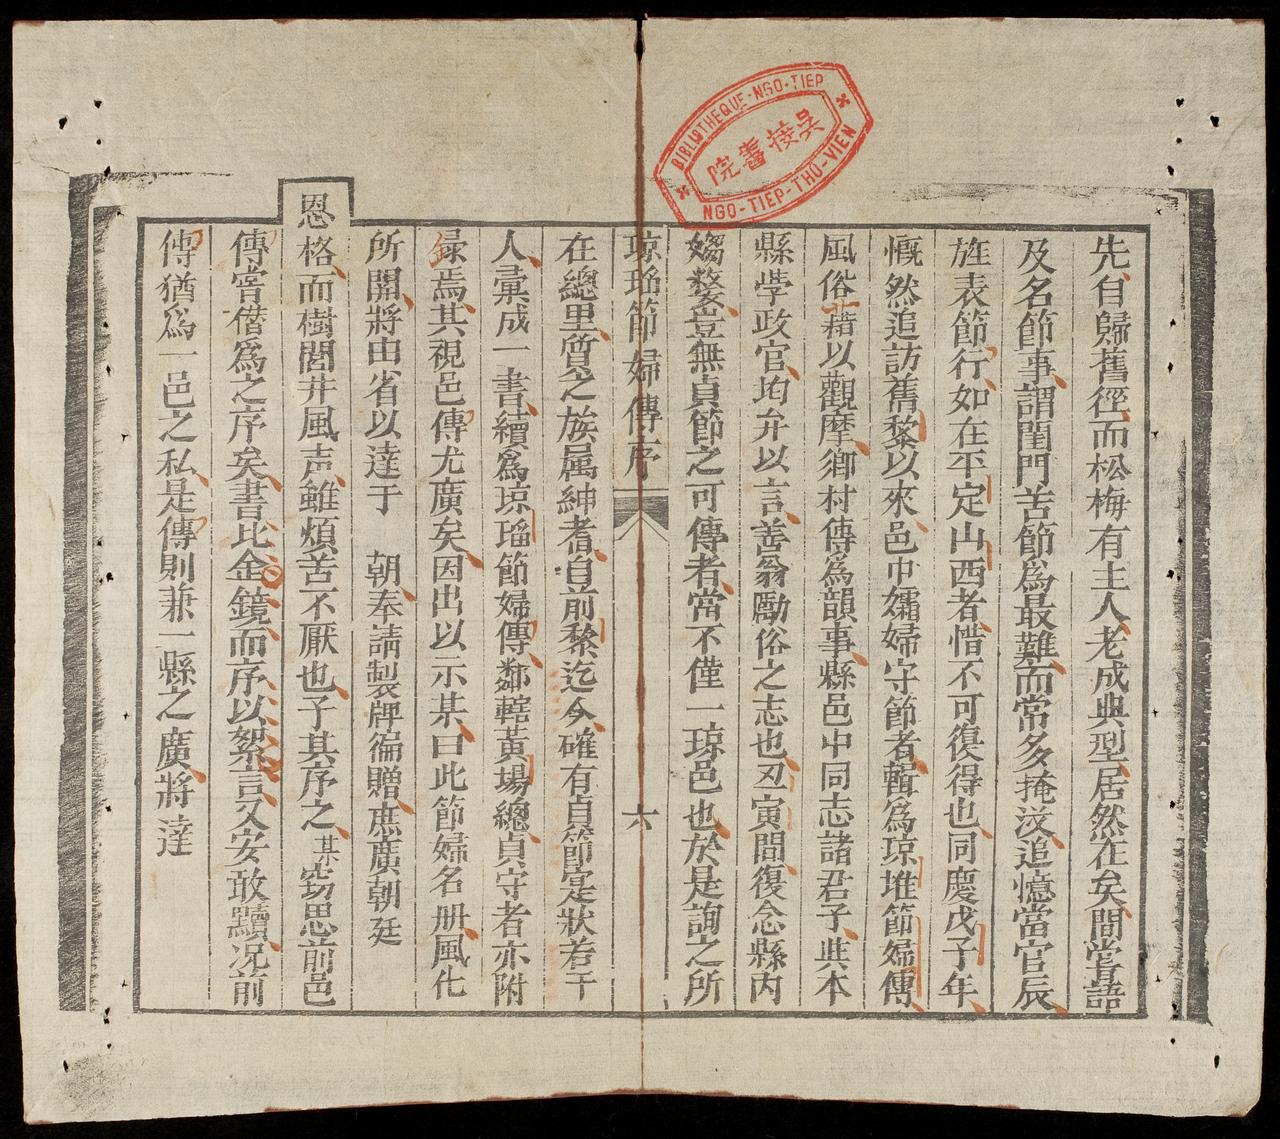 BIBLIOTHEQUE-NGO-TIEP
吳接書院
NGO-TIEP-THU-VIEN
先自歸舊徑而松梅有主人老成典型居然在矣間嘗語
及名節事謂閨門苦節為最難而常多掩沒追憶當官辰
旌表節行如在平定山西者惜不可復得也同慶戊子年
慨然追訪舊黎以來邑中孀婦守節者輯為琼堆節婦傳
風俗藉以觀摩鄉村傳為韻事縣邑中同志諸君子與本
縣學政官均弁以言善翁勵俗之志也丑寅間復念縣内
嫠豈無貞節之可傳者當不僅一琼邑也於是詢之所
琼瑤節婦傳序 六
在總里質之族属紳耆自前黎迄今確有貞節寔狀若干
人彙成一書續為琼瑤節婦傳鄰轄黃場總貞守者亦附
録焉其視邑傳尤廣矣因出以示某曰此節婦名册風化
所關將由省以達于 朝奉請製牌徧贈庶廣朝廷
恩格而樹閭井風声雖煩苦不厭也子其序之某窃思前邑
傳嘗僭為之序矣書比金鏡而序以絮言又安敢黷况前
傳猶為一邑之私是傳則兼一縣之廣將達